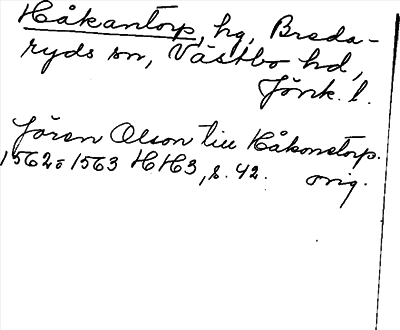 Håkantorp, hg, Breda-
ryds sn, Västbo hd,
Jönk. l.
Jören Olson till Håkonstorp.
1562 o 1563 HH3, s. 42. orig.